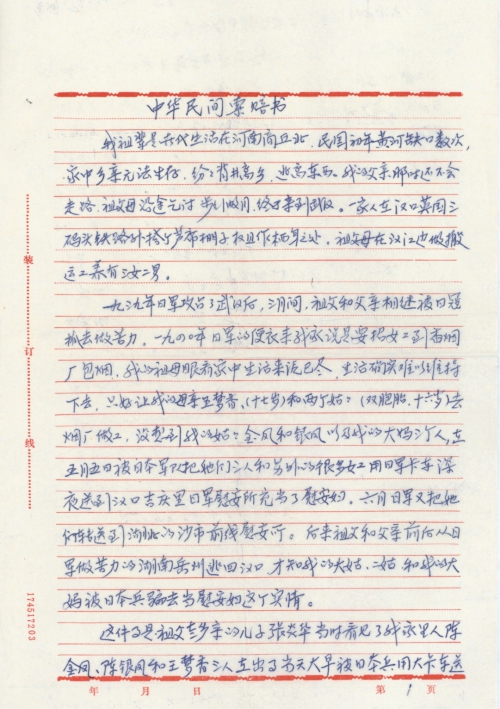 中华民间索赔书
我祖辈是世代生活在河南商丘北，民国初年黄河缺口数次，
家中乡亲无法生存，纷纷背井离乡，逃离东西。我的父亲那时还不会
走路，祖父母沿途乞讨 步行数月，终于来到武汉。一家人在汉口英国三
码头铁路外搭了芦布棚子权且作栖身之处，祖父母在汉江边做搬
运工养有三女二男。
一九三九年日军攻占了武汉后，三月间，祖父和父亲相继被日冠
抓去做苦力，一九四〇年日军的便衣来我家说是要招女工到香烟
厂包烟，我的祖母眼看家中生活来源已尽，生活确实难以维持
下去，只好让我的母亲王梦香，（十七岁）和两个姑姑（双胞胎，十六岁）去
烟厂做工，没想到我的姑姑金凤和银凤以及我的大妈三个人，在
五月五日被日本军队把她们三人和另外的很多女工用日军卡车深
夜送到汉口吉庆里日军慰安所充当了慰安妇，六月日军又把她
们转送到湖北的沙市前线慰安所。后来祖父和父亲前后从日
军做苦力的湖南岳州逃回汉口，才知我的大姑、二姑和我的大
妈被日本兵骗去当慰安妇这个实情。
这件事是祖父老乡亲的儿子张炎华当时看见了我家里人陈
金凤、陈银凤和王梦香三人在出事当天大早被日本兵用大卡车送
装
订
线
174517203
年 月 日 第 1 页